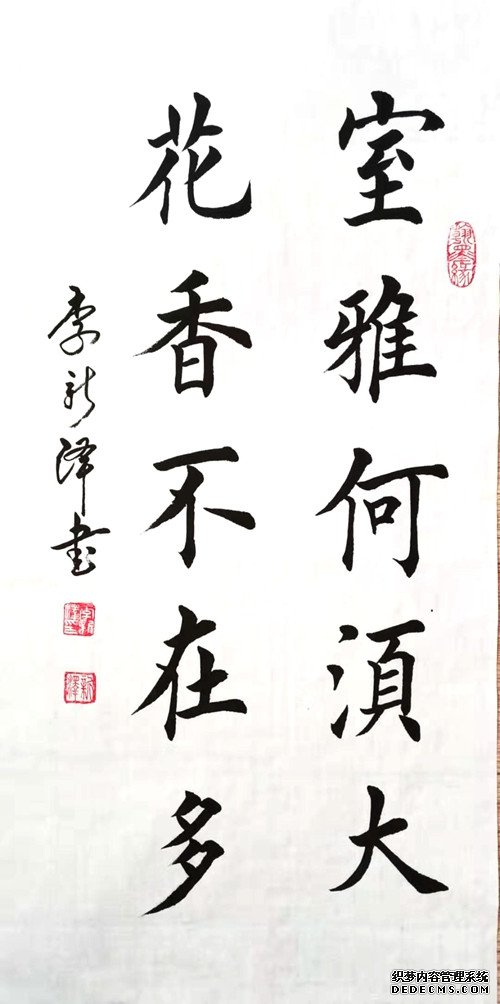 室雅何湏大
花香不在多
李新泽書
翰墨缘
织梦内容管理系统
DEDECMS.COM